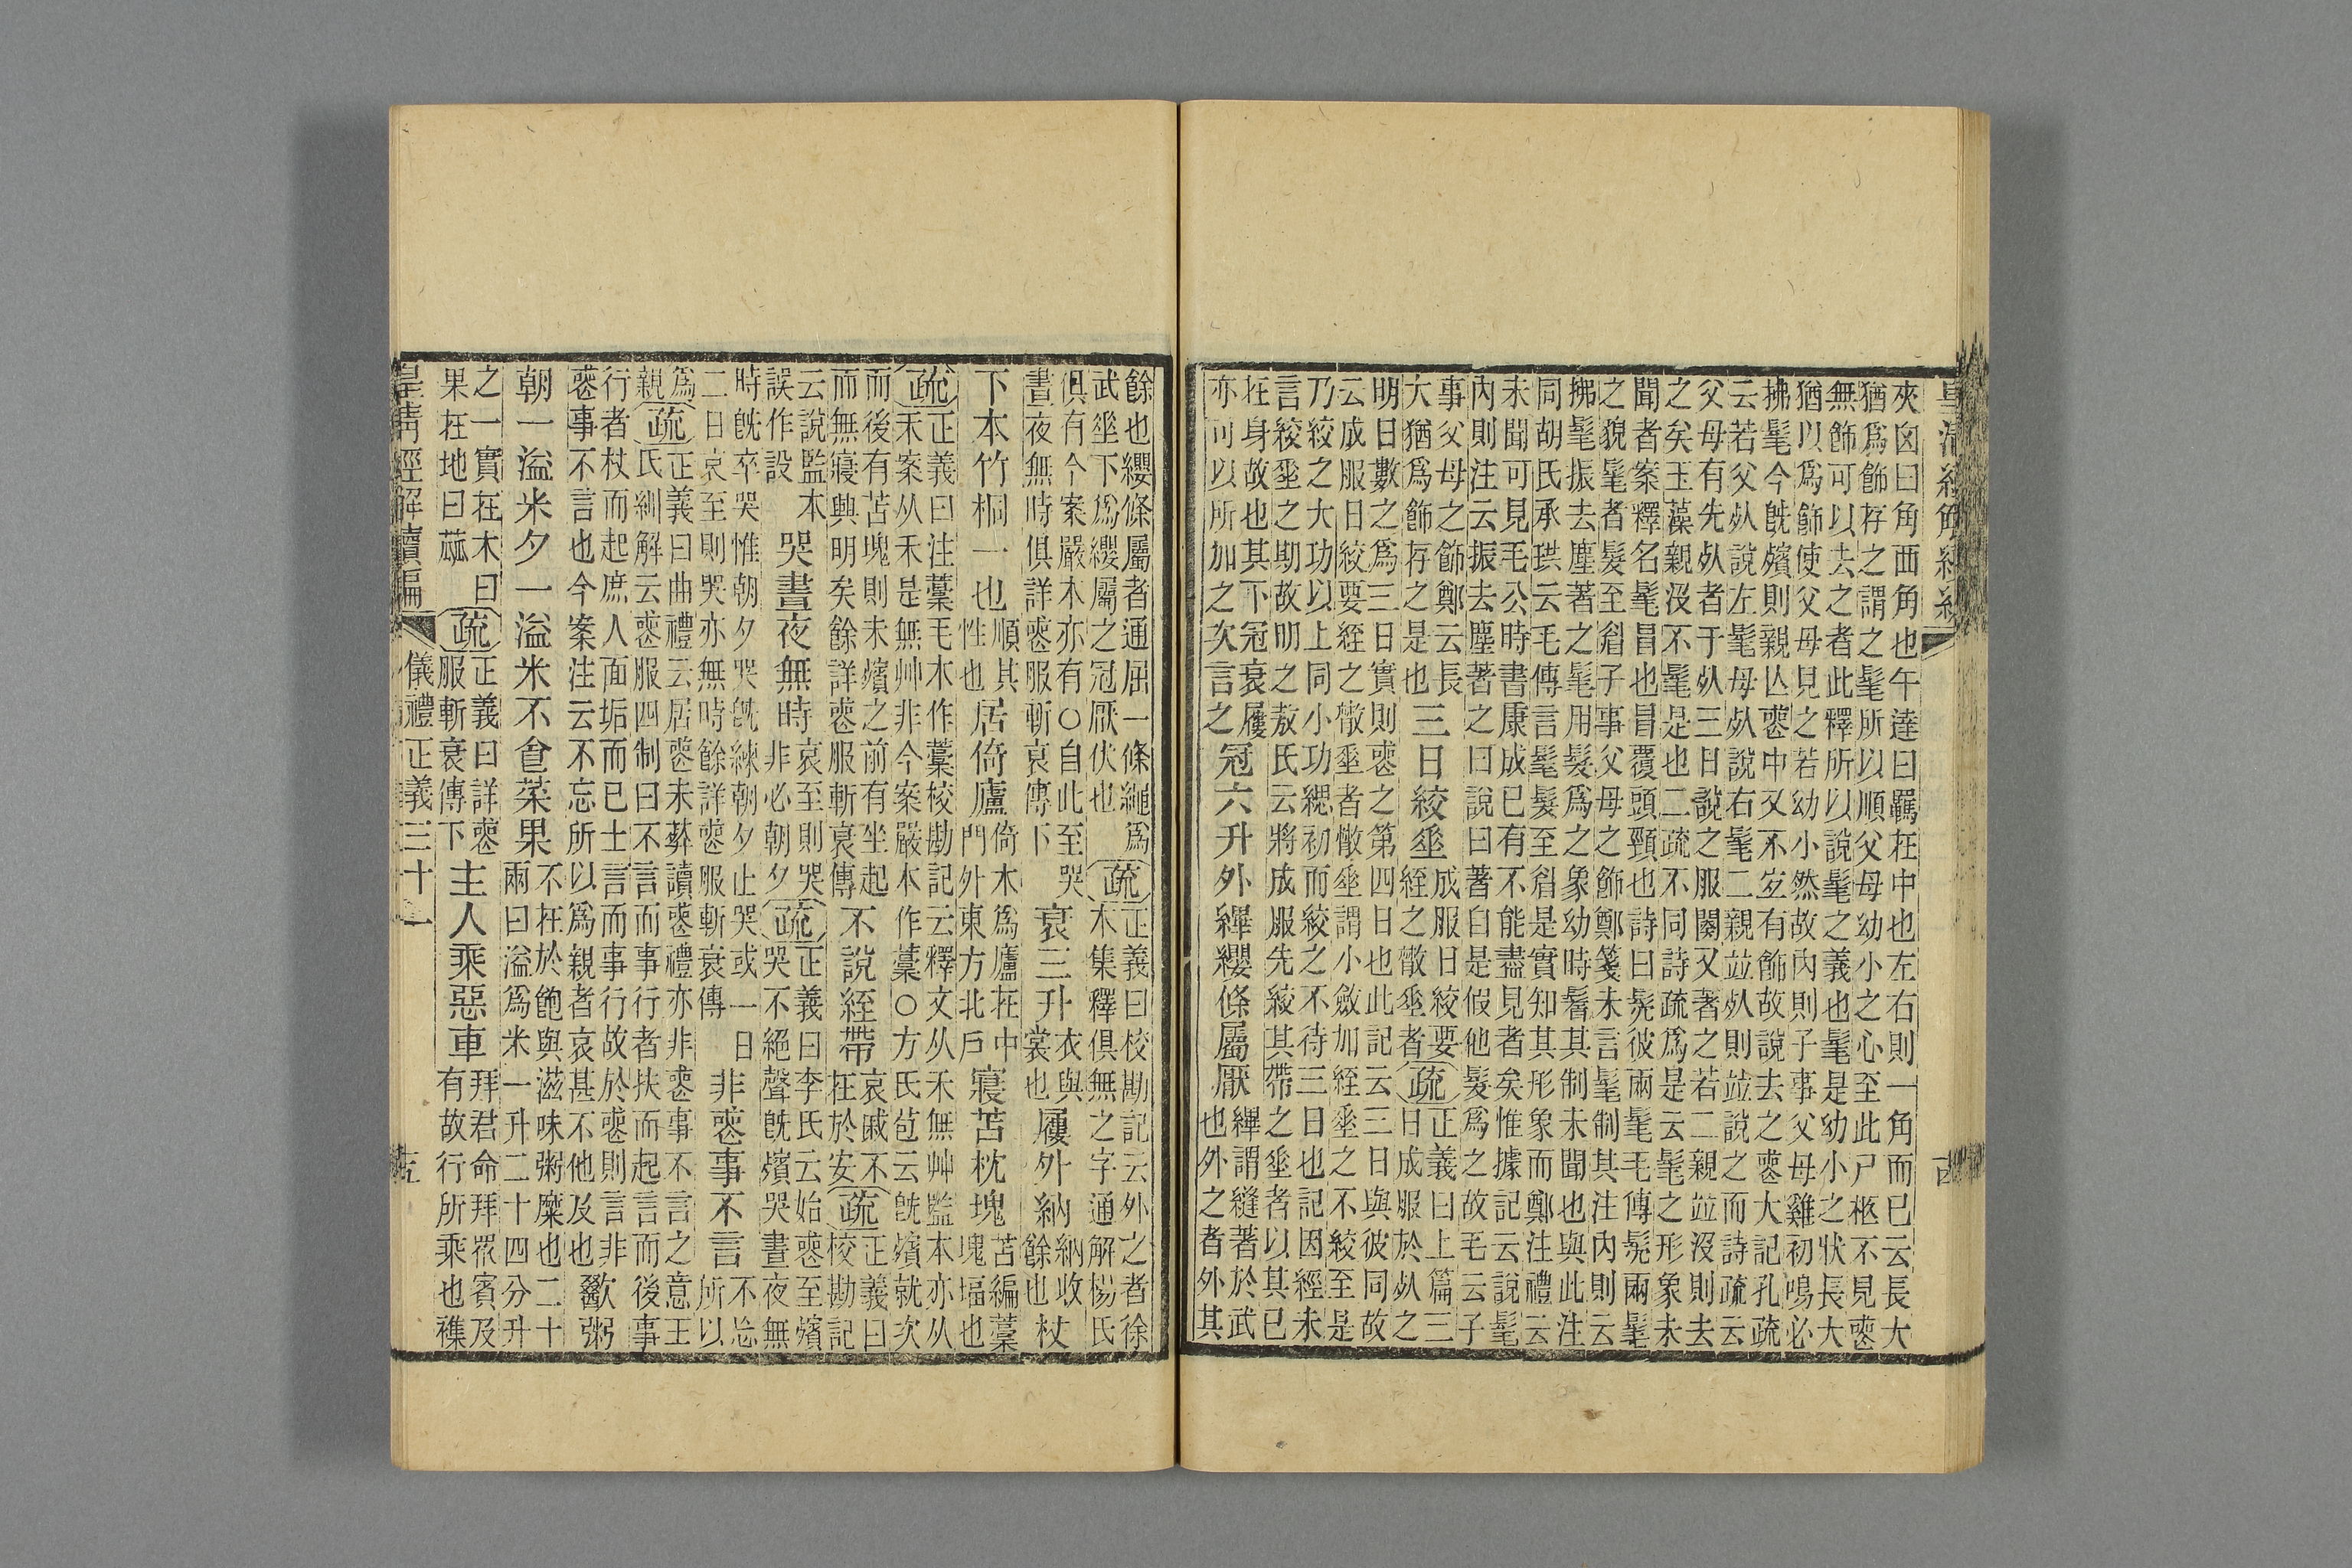 夾囟曰角兩角也午達曰羈在中也左右則一角而已云長大
猶爲飾存之謂之髦所以順父母幼小之心至此尸柩不見喪
無飾可以去之者此釋所以說髦之義也髦是幼小之狀長大
猶以爲飾使父母見之若幼小然故內則子事父母雞初鳴必
拂髦今旣殯則親亾喪中又不宐有飾故說去之喪大記孔疏
云若父𣦸說左髦母𣦸說右髦二親竝𣦸則竝說之而詩疏云
父母有先𣦸者于𣦸三日說之服闋又著之若二親竝沒則去
之矣玉藻親沒不髦是也二疏不同詩疏爲是云髦之形象未
聞者案釋名髦冒也冒覆頭頸也詩曰髧彼兩髦毛傳髧兩髦
之貌髦者髮至眉子事父母之飾鄭箋未言髦制其注內則云
拂髦振去塵著之髦用髮爲之象幼時鬌其制未聞也與此注
同胡氏承珙云毛傳言髦髮至眉是實知其形象而鄭注禮云
未聞可見毛公時書康成已有不能盡見者矣惟據記云說髦
內則注云振去塵著之曰說曰著自是假他髮爲之故毛云子
事父母之飾鄭云長
大猶爲飾存之是也
三日絞垂
成服日絞要
絰之散垂者
疏
正義曰上篇三
日成服於𣦸之
明日數之爲三日實則喪之第四日也此記云三日與彼同故
云成服日絞要絰之散垂者散垂謂小斂加絰垂之不絞至是
乃絞之大功以上同小功緦初而絞之不待三日也記因經未
言絞垂之期故明之敖氏云將成服先絞其帶之垂者以其已
在身故也其下冠衰屨
亦可以所加之次言之
冠六升外縪纓條屬厭
縪謂縫著於武
也外之者外其
餘也纓條屬者通屈一條繩爲
武垂下爲纓屬之冠厭伏也
疏
正義曰校勘記云外之者徐
本集釋俱無之字通解楊氏
俱有今案嚴本亦有○自此至哭
晝夜無時俱詳喪服斬衰傳下
衰三升
衣與
裳也
屨外納
納收
餘也
杖
下本竹桐一也
順其
性也
居倚廬
倚木爲廬在中
門外東方北戶
寢苫枕塊
苫編藁
塊堛也
疏
正義曰注藁毛木作藳校勘記云釋文从禾無艸監本亦从
禾案从禾是無艸非今案嚴本作藁○方氏苞云旣殯就次
而後有苫塊則未殯之前有坐起
而無寢興明矣餘詳喪服斬衰傳
不說絰帶
哀戚不
在於安
疏
正義曰
校勘記
云說監本
誤作設
哭晝夜無時
哀至則哭
非必朝夕
疏
正義曰李氏云始喪至殯
哭不絕聲旣殯哭晝夜無
時旣卒哭惟朝夕哭旣練朝夕止哭或一日
二日哀至則哭亦無時餘詳喪服斬衰傳
非喪事不言
不忘
所以
爲
親
疏
正義曰曲禮云居喪未葬讀喪禮亦非喪事不言之意王
氏紃解云喪服四制曰不言而事行者扶而起言而後事
行者杖而起庶人面垢而已士言而事行故於喪則言非
喪事不言也今案注云不忘所以爲親者哀甚不他及也
歠粥
朝一溢米夕一溢米不食菜果
不在於飽與滋味粥糜也二十
兩曰溢爲米一升二十四分升
之一實在木曰
果在地曰蓏
疏
正義曰詳喪
服斬衰傳下
主人乘惡車
拜君命拜衆賓及
有故行所乘也襍
皇清經解續編
儀禮正義三十一